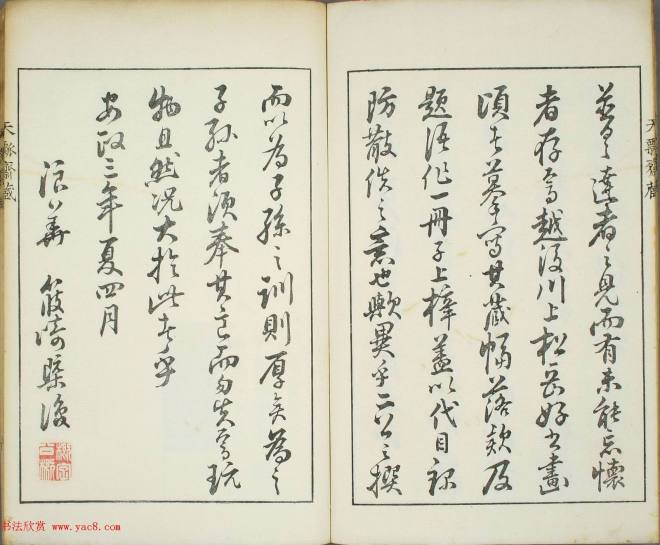 並是達者之見而有未能忘懷
者存焉越後川上松好書畫
頃者摹寫其藏幅落款及
題語作一冊子上梓蓋以代目
防散佚之意也歟異乎二公之撰
而以為子孫之訓則厚矣為之
子孫者須奉其意而勿失焉玩
物且然況大於此者乎
安政三年夏四月
浪華 篠崎
书法欣赏 www.yac8.com